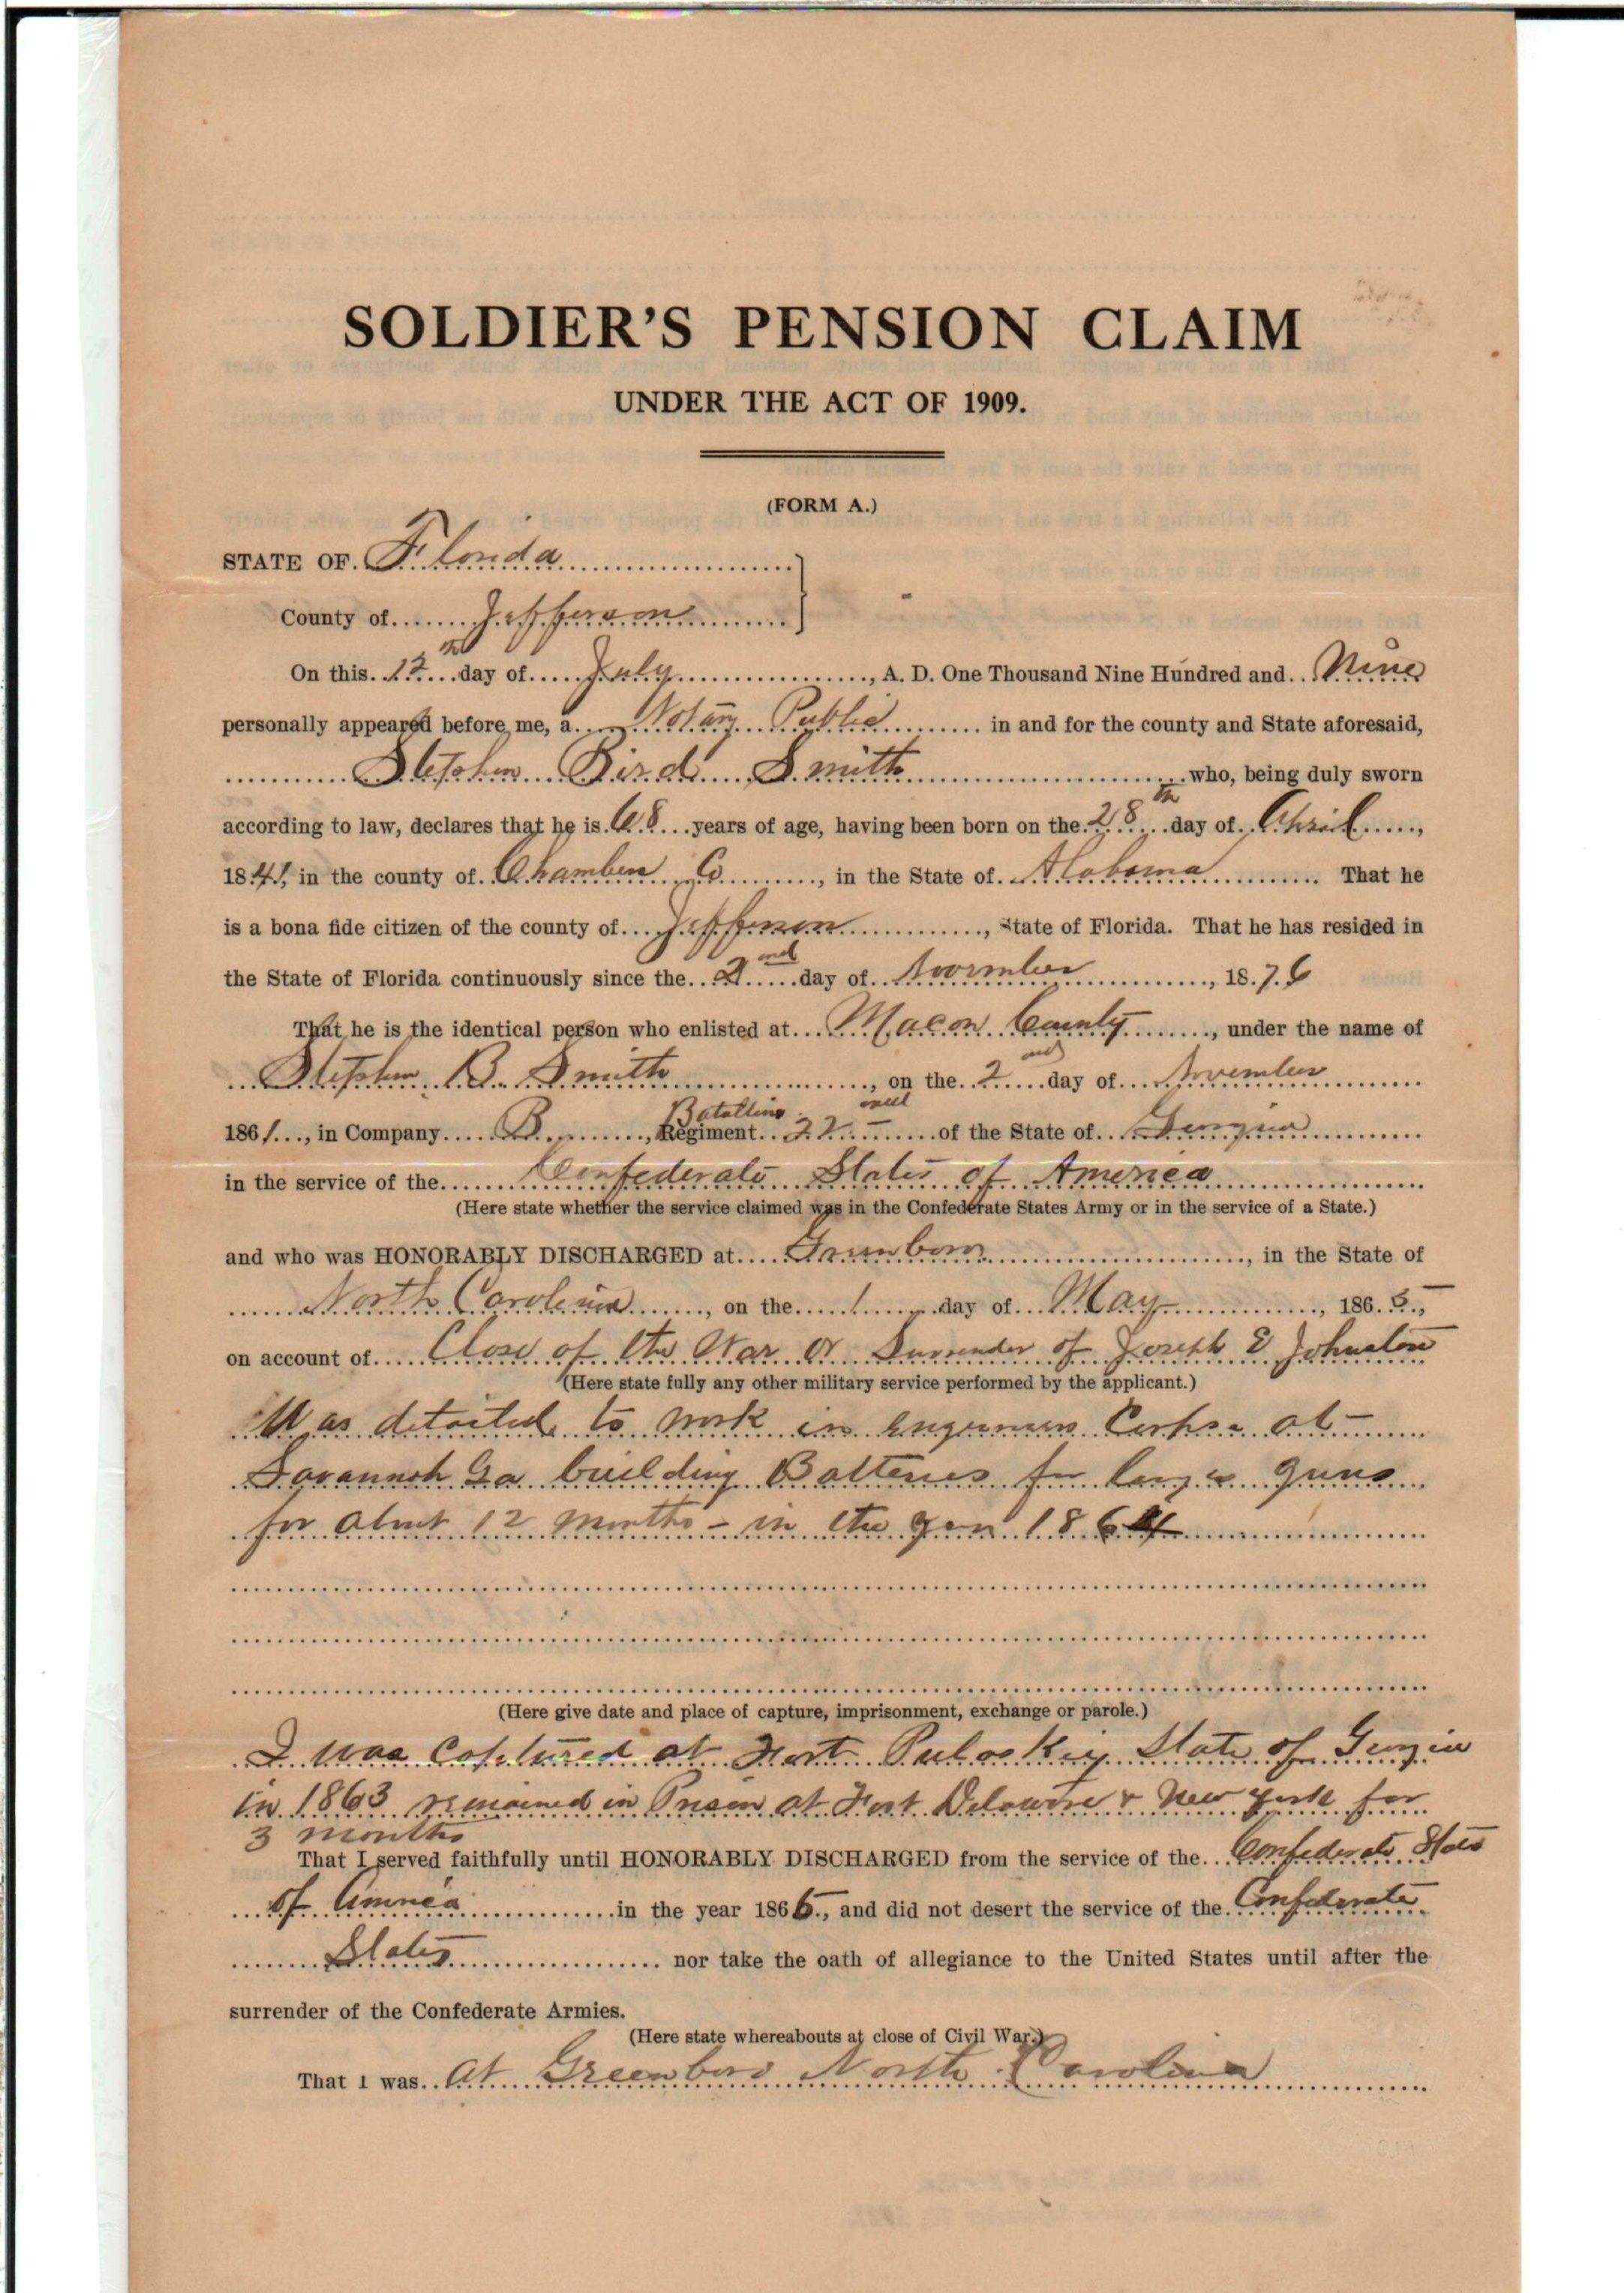 SOLDIER'S PENSION CLAIM
UNDER THE ACT OF 1909.
(FORM A.)
STATE OF Florida
County of Jefferson
On this 12th day of July, A. D. One Thousand Nine Hundred and Nine
personally appeared before me, a Notary Public in and for the county and State aforesaid,
Stephen Bird Smith who, being duly sworn
according to law, declares that he is 68 years of age, having been born on the 28th day of April,
1841, in the county of Chambers Co, in the State of Alabama That he
is a bona fide citizen of the county of Jefferson, State of Florida. That he has resided in
the State of Florida continuously since the 2nd day of November, 1876
That he is the identical person who enlisted at Macon County, under the name of
Stephen B Smith, on the 2nd day of November
1861, in Company B, Regiment Batallion 22nd of the State of Georgia
in the service of the Confederate States of America
(Here state whether the service claimed was in the Confederate States Army or in the service of a State.)
and who was HONORABLY DISCHARGED at Greenboro, in the State of
North Carolina, on the 1 day of May, 1865,
on account of Close of the War or Surrender of Joseph E Johnston
(Here state fully any other military service performed by the applicant.)
Was detailed to work in Corps at
Savannah Ga building Batteries for large guns
for about 12 months - in the year 1864
(Here give date and place of capture, imprisonment, exchange or parole.)
I was captured at Fort Pulaskey State of Georgia
in 1863 remained in Prison at Fort Delaware & New York for
3 months
That I served faithfully until HONORABLY DISCHARGED from the service of the Confederate States
of America in the year 1865, and did not desert the service of the Confederate
States nor take the oath of allegiance to the United States until after the
surrender of the Confederate Armies.
(Here state whereabouts at close of Civil War.)
That I was at Greenboro North Carolina